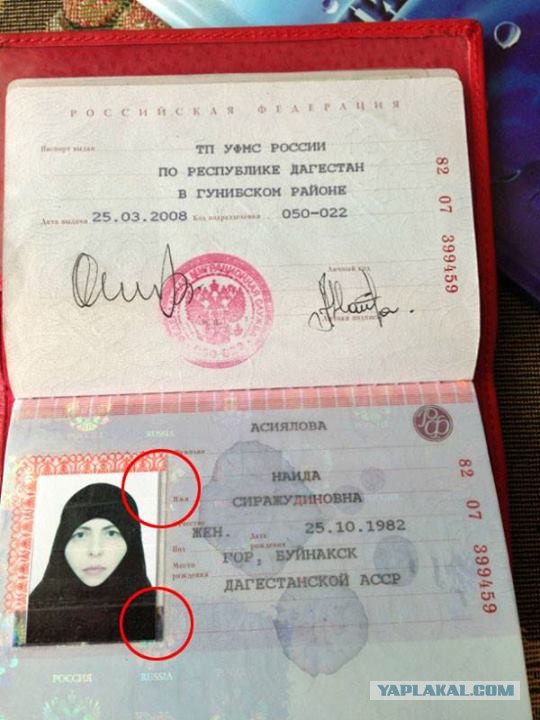 РОССИЙСКАЯ ФЕДЕРАЦИЯ
Паспорт выдан ТП УФМС РОССИИ
ПО РЕСПУБЛИКЕ ДАГЕСТАН
В ГУНИБСКОМ РАЙОНЕ
Дата выдачи 25.03.2008 Код подразделения 050-022
Личный код
Личная подпись
82 07 399459
050-022
РФ
РОССИЯ RUSSIA
АСИЯЛОВА
Фамилия
НАИДА
Имя
СИРАЖУДИНОВНА
Отчество
ЖЕН. Дата рождения 25.10.1982
Пол
Место рождения ГОР, БУЙНАКСК
ДАГЕСТАНСКОЙ АССР
82 07 399459
РОССИЯ RUSSIA РОССИЯ
YAPLAKAL.COM